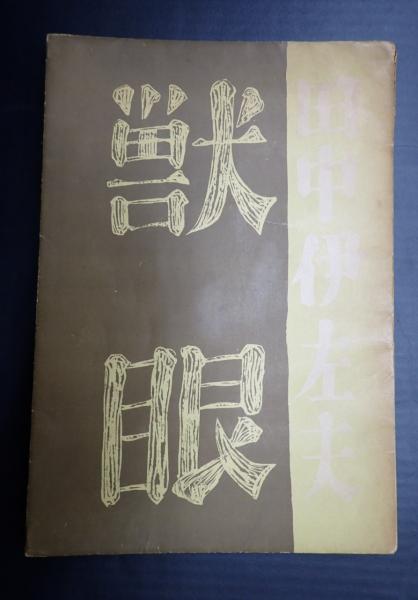 田中伊左夫
獣眼